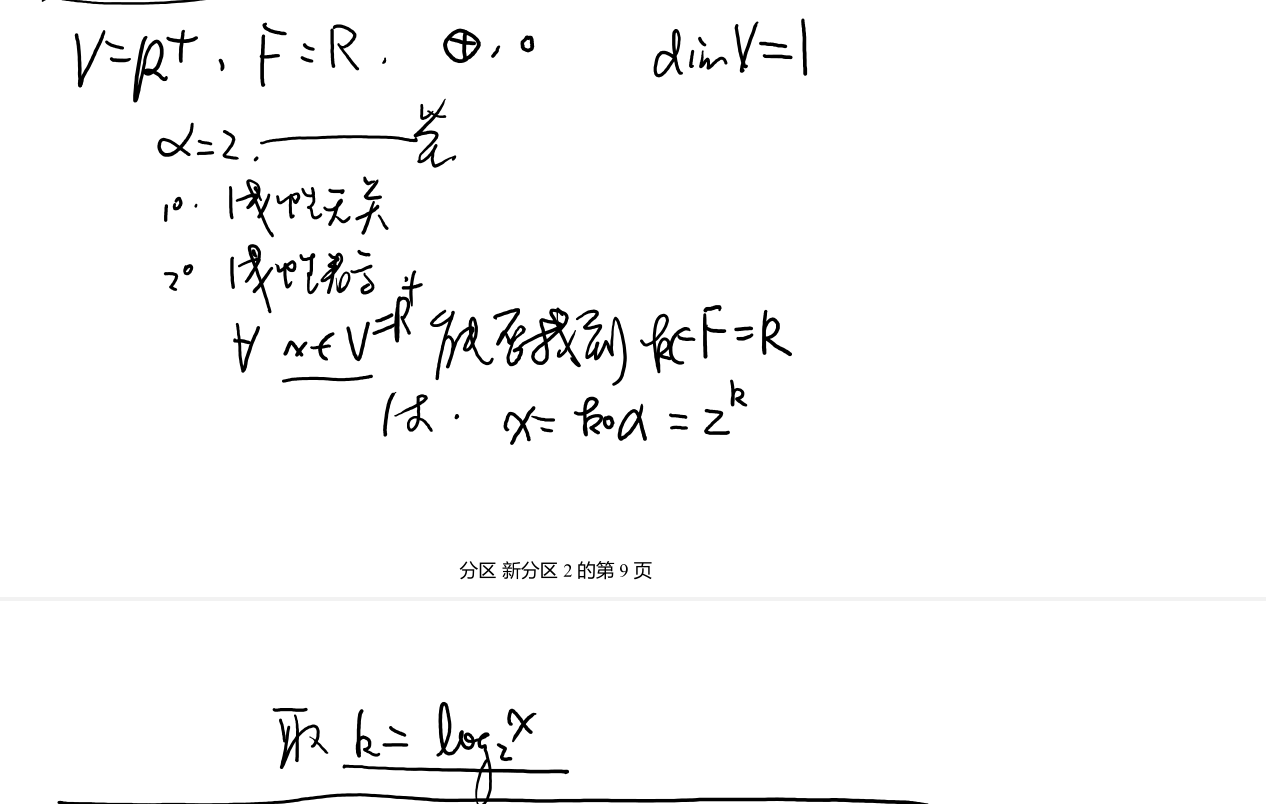 V=R⁺, F=R. ⊕, ∘ dim V=1
α=2. 基
1°. 线性无关
2° 线性表示
∀ x∈V=R⁺ 能否找到 k∈F=R
使. x= k∘α = 2ᵏ
分区 新分区 2 的第 9 页
取 k= log₂x